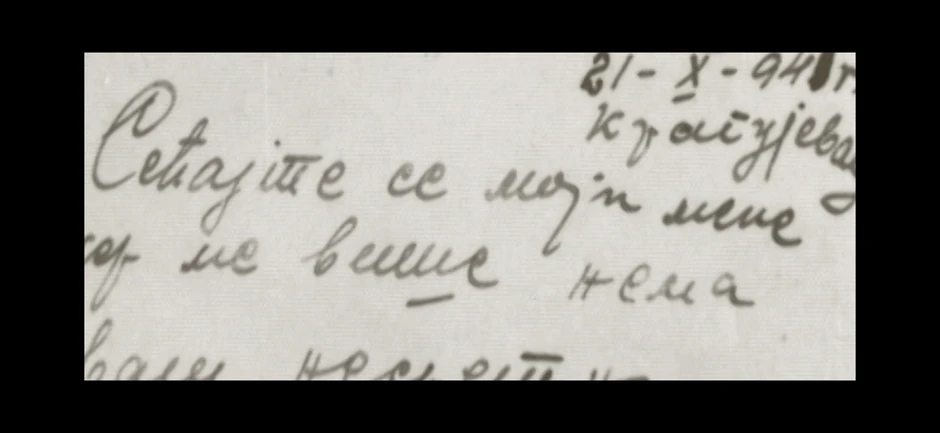 21-X-941 г.
Крагујевац
Сећајте се моји мене
јер ме више нема
ваш несретни